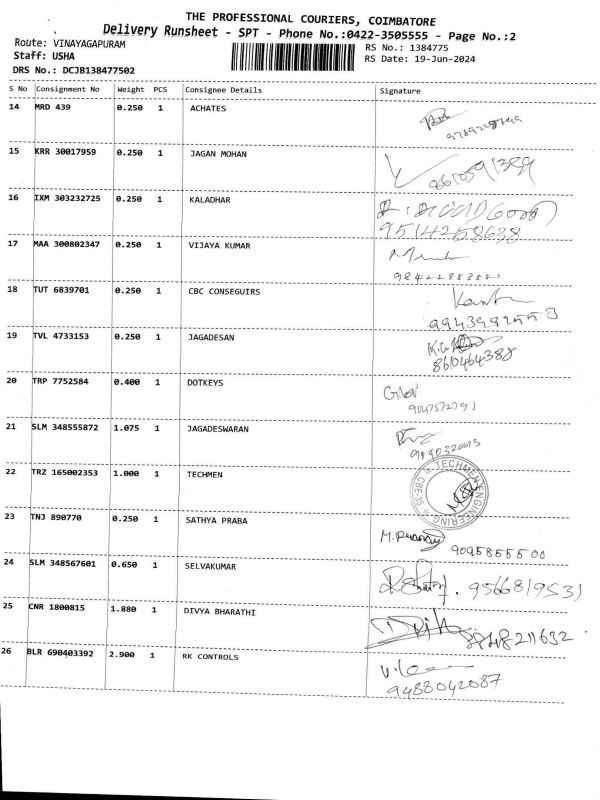 THE PROFESSIONAL COURIERS, COIMBATORE
Delivery Runsheet - SPT - Phone No.:0422-3505555 - Page No.:2
Route: VINAYAGAPURAM
Staff: USHA
DRS No.: DCJB138477502
RS No.: 1384775
RS Date: 19-Jun-2024
S No Consignment No Weight PCS Consignee Details Signature
14 MRD 439 0.250 1 ACHATES
15 KRR 30017959 0.250 1 JAGAN MOHAN
16 IXM 303232725 0.250 1 KALADHAR
9514258638
17 MAA 300802347 0.250 1 VIJAYA KUMAR
18 TUT 6839701 0.250 1 CBC CONSEGUIRS
19 TVL 4733153 0.250 1 JAGADESAN
20 TRP 7752584 0.400 1 DOTKEYS
9047572791
21 SLM 348555872 1.075 1 JAGADESWARAN
22 TRZ 165002353 1.000 1 TECHMEN
TECHMEN ENGINEERING
CBE-35
23 TNJ 890770 0.250 1 SATHYA PRABA
9095855500
24 SLM 348567601 0.650 1 SELVAKUMAR
9566819531
25 CNR 1800815 1.880 1 DIVYA BHARATHI
26 BLR 690403392 2.900 1 RK CONTROLS
9488042087